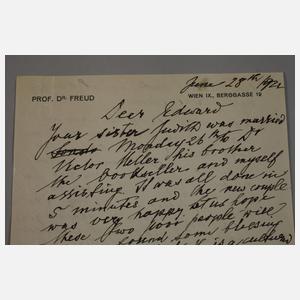 June 28th 1922
PROF. DR. FREUD
WIEN IX., BERGGASSE 19
Dear Edward
Your sister Judith was married
Monday 26th/6 Dr
Victor Heller his brother
the bookseller and myself
assisting It was all done in
5 minutes and the new couple
was very happy let us hope
these two poor people will
found some blessing
is a cultured